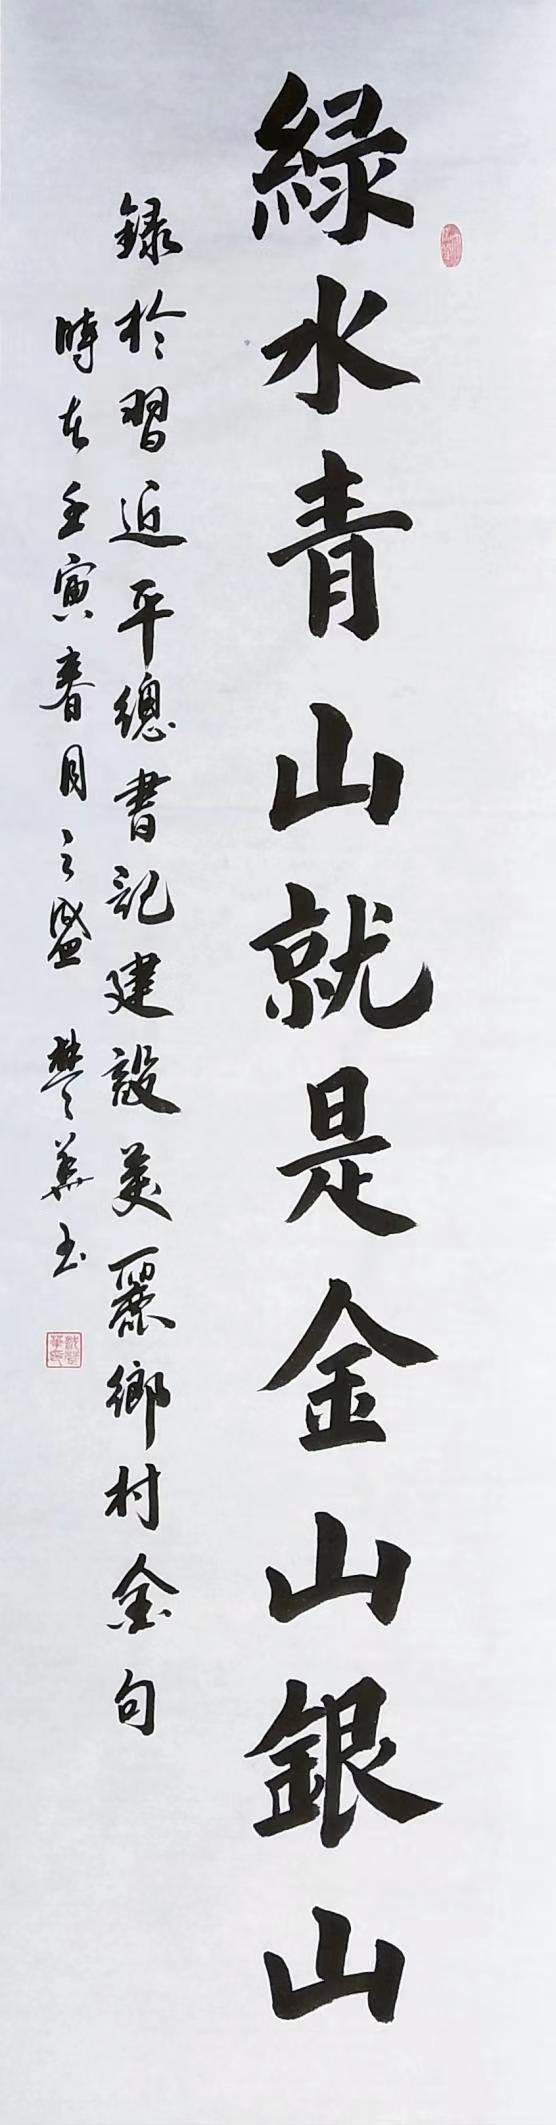 綠水青山就是金山銀山
錄於習近平總書記建設美麗鄉村金句
時在壬寅春月之盛 樊華玉